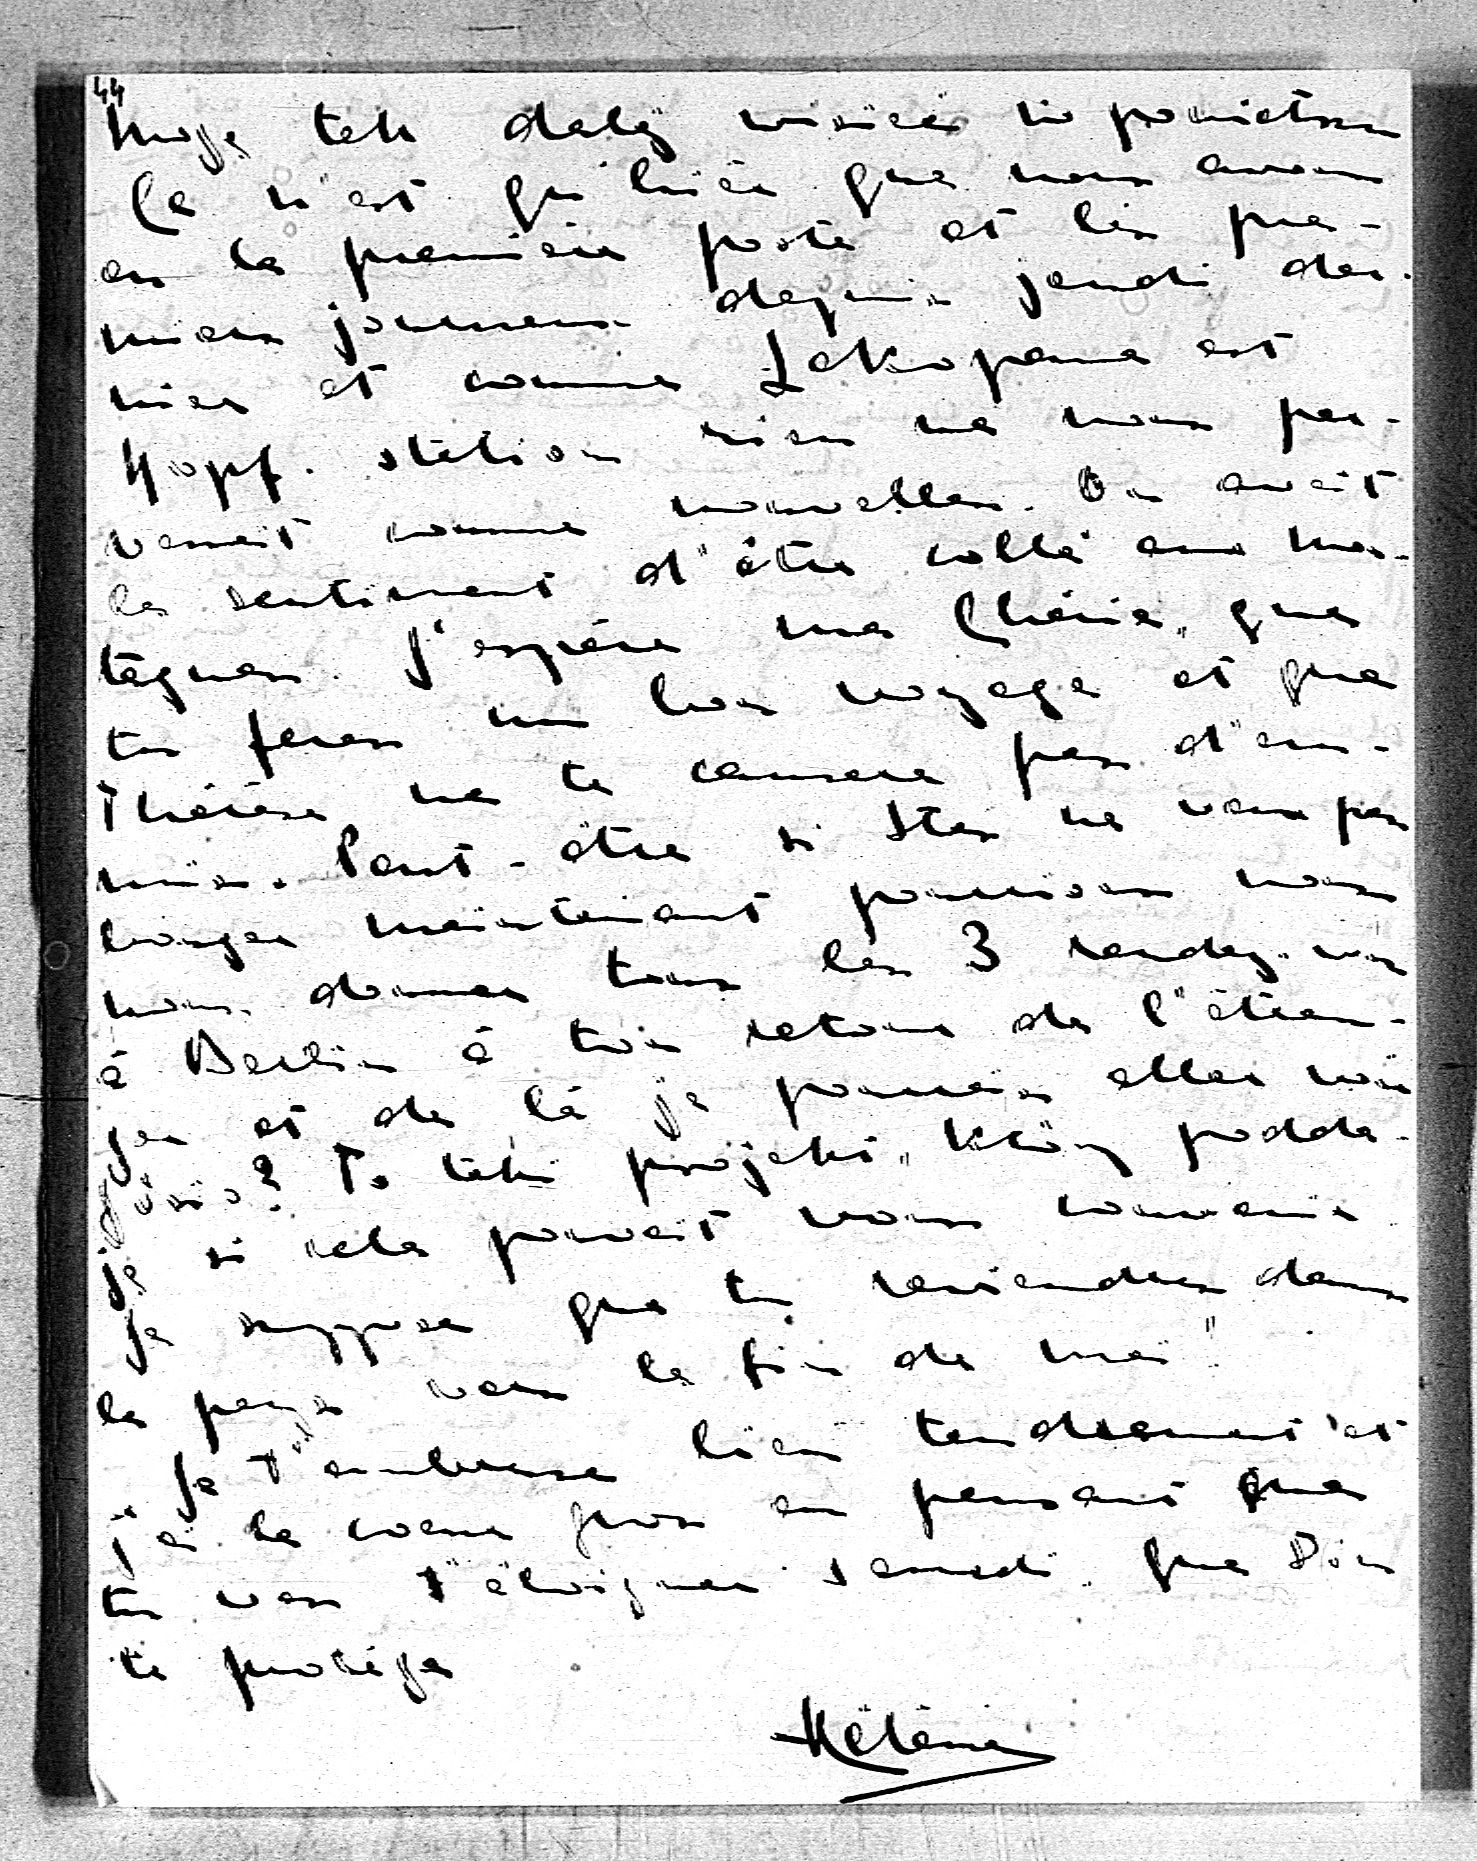 44
mogę tak dalej wisieć w powietrzu
Ça n'est qu'hier que nous avons
eu la première poste et les pre-
miers journaux depuis jeudi der-
nier et comme Zakopane est
Kopf. station rien ne nous par-
venait comme nouvelles. On avait
le sentiment d'être collé aux mon-
tagnes. J'espère ma Chérie, que
tu feras un bon voyage et que
Thérèse ne te causera pas d'en-
nuis. Peut-être si Stas ne veux pas
bouger maintenant pourrions nous
nous donner tous les 3 rendez-vous
à Berlin à ton retour de l'étran-
ger et de là je pourrais aller voir
Józio? To taki projekt, który podda-
ję si cela pouvait vous convenir
Je suppose que tu reviendras dans
le pays vers la fin de mai"
Je t'embrasse bien tendrement et
j'ai le coeur gros en pensant que
tu vas t'éloigner samedi. que Dieu
te protège
Hélène